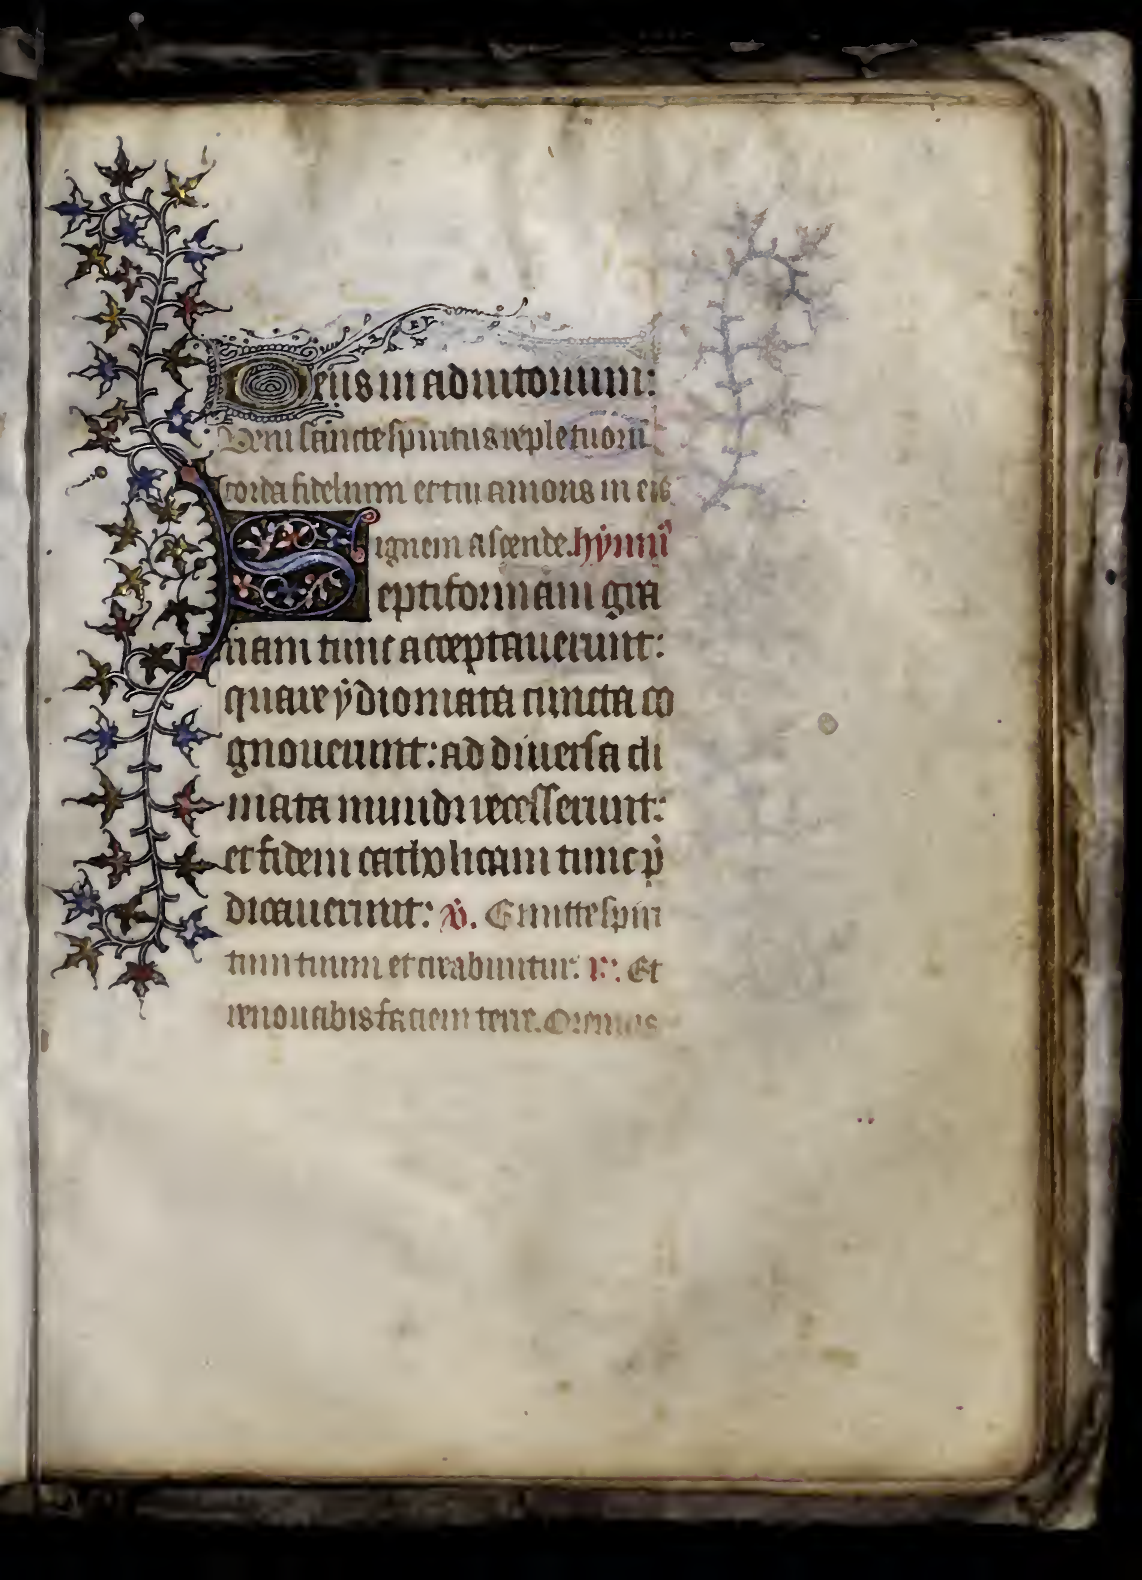 Deus in adiutorium:
Veni sancte spiritus reple tuorū
corda fidelium et tui amoris in eis
ignem ascende. hymnū
Septiformam gra
tiam tunc acceptauerunt:
quare ydiomata cuncta co
gnouerunt: ad diuersa cli
mata mundi recesserunt:
et fidem catholicam tunc p̄
dicauerunt: v̇. Emitte spiri
tum tuum et creabuntur. r̄. Et
renouabis faciem terre. Oremus